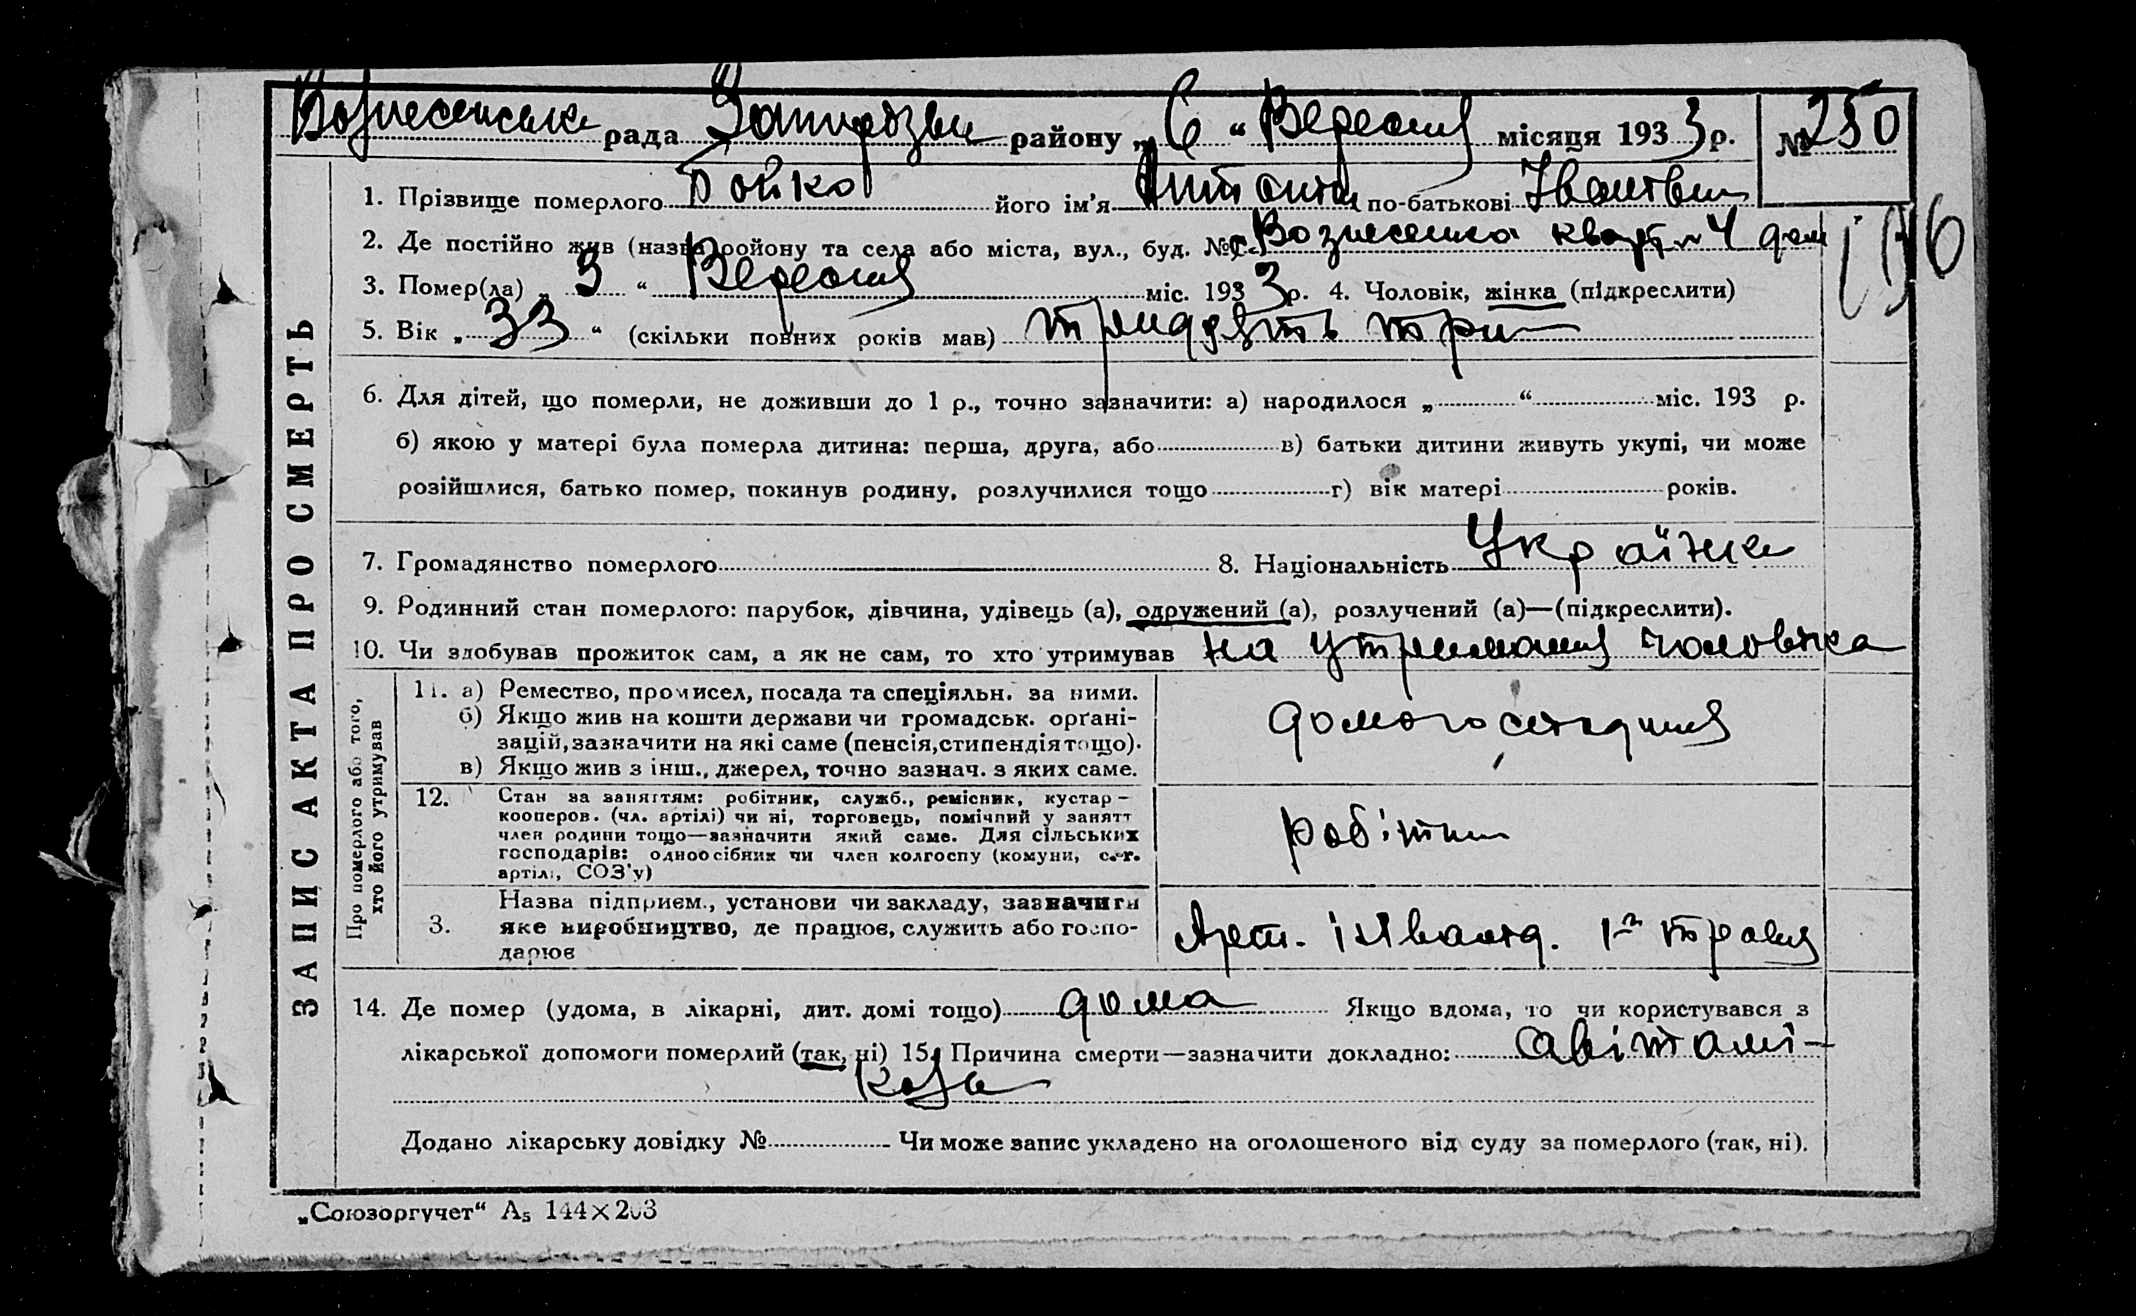 Вознесенська рада Запорізьк району „ 6 “ Вересня місяця 1933 р. № 250
1. Прізвище померлого Бойко його ім'я Антоніна по-батькові Іванівн
196
2. Де постійно жив (назва ройону та села або міста, вул., буд. № с. Вознесенка кварт. № 4 дом
3. Помер(ла) „ 3 “ Вересня міс. 1933 р. 4. Чоловік, жінка (підкреслити)
5. Вік „ 33 “ (скільки повних років мав) тридцять три
6. Для дітей, що померли, не доживши до 1 р., точно зазначити: а) народилося „ “ міс. 193 р.
б) якою у матері була померла дитина: перша, друга, або в) батьки дитини живуть укупі, чи може
розійшлися, батько помер, покинув родину, розлучилися тощо г) вік матері років.
7. Громадянство померлого 8. Національність Українка
9. Родинний стан померлого: парубок, дівчина, удівець (а), одружений (а), розлучений (а)—(підкреслити).
10. Чи здобував прожиток сам, а як не сам, то хто утримував на утримання чоловіка
ЗАПИС АКТА ПРО СМЕРТЬ
Про померлого або того,
хто його утримував
11. а) Ремество, промисел, посада та спеціяльн. за ними.
б) Якщо жив на кошти держави чи громадськ. орґані-
зацій, зазначити на які саме (пенсія, стипендія тощо).
в) Якщо жив з інш., джерел, точно зазнач. з яких саме.
домогосподиня
12. Стан за заняттям: робітник, служб., ремісник, кустар –
кооперов. (чл. артілі) чи ні, торговець, помічний у занятт
член родини тощо—зазначити який саме. Для сільських
господарів: одноосібник чи член колгоспу (комуни, с.-г.
артілі, СОЗ'у)
робітн
3. Назва підприєм., установи чи закладу, зазначити
яке виробництво, де працює, служить або госпо-
дарює
Арт. інвалід. 1го травня
14. Де помер (удома, в лікарні, дит. домі тощо) дома Якщо вдома, то чи користувався з
лікарської допомоги померлий (так, ні) 15. Причина смерти—зазначити докладно: авітамі-
коза
Додано лікарську довідку № Чи може запис укладено на оголошеного від суду за померлого (так, ні).
„Союзоргучет“ А₅ 144×203